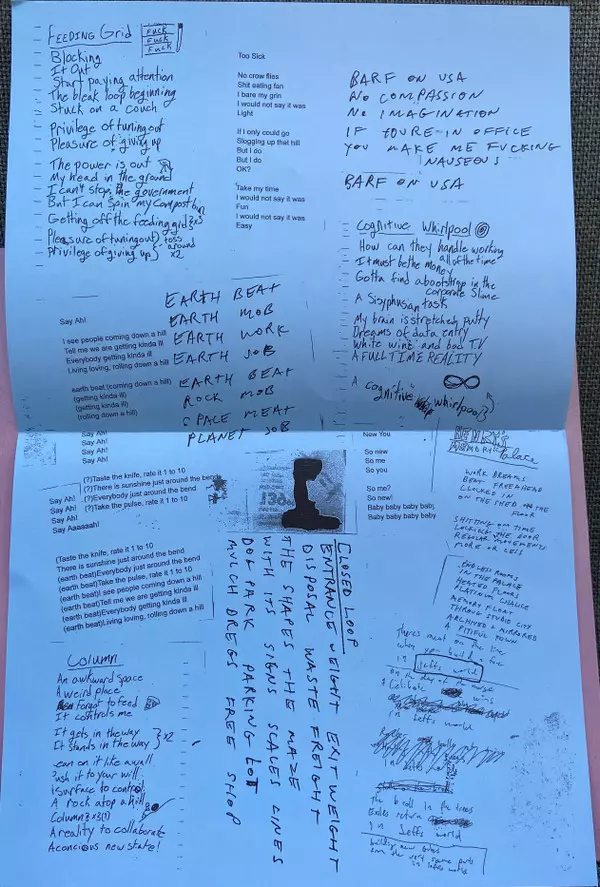 FEEDING Grid
FUCK
FUCK
FUCK
Blocking
It Out
Start paying attention
The bleak loop beginning
Stuck on a couch
Privilege of tuning out
Pleasure of giving up
The power is out
My head in the ground
I can't stop the government
But I can spin my compost bin
Getting off the feeding grid } x3
Pleasure of tuning out } toss
Privilege of giving up } around
x2
Too Sick
No crow flies
Shit eating fan
I bare my grin
I would not say it was
Light
If I only could go
Slogging up that hill
But I do
But I do
OK?
Take my time
I would not say it was
Fun
I would not say it was
Easy
BARF ON USA
NO COMPASSION
NO IMAGINATION
IF YOURE IN OFFICE
YOU MAKE ME FUCKING
NAUSEOUS
BARF ON USA
Cognitive Whirlpool
How can they handle working
all of the time
It must be the money
Gotta find a bootstrap in the
corporate slime
A Sisyphusian task
My brain is stretched putty
Dreams of data entry
White wine and bad TV
A FULL TIME REALITY
A cognitive whirlpool
Say Ah!
I see people coming down a hill
Tell me we are getting kinda ill
Everybody getting kinda ill
Living loving, rolling down a hill
earth beat (coming down a hill)
(getting kinda ill)
(getting kinda ill)
(rolling down a hill)
EARTH BEAT
EARTH MOB
EARTH WORK
EARTH JOB
EARTH BEAT
ROCK MOB
SPACE MEAT
PLANET JOB
Say Ah!
Say Ah!
Say Ah!
Say Ah!
Say Ah!
Say Ah! (?)Taste the knife, rate it 1 to 10
Say Ah! (?)There is sunshine just around the bend
Say Ah! (?)Everybody just around the bend
Say Ah! (?)Take the pulse, rate it 1 to 10
Say Aaaaaah!
(Taste the knife, rate it 1 to 10
There is sunshine just around the bend
(earth beat)Everybody just around the bend
(earth beat)Take the pulse, rate it 1 to 10
(earth beat)I see people coming down a hill
(earth beat)Tell me we are getting kinda ill
(earth beat)Everybody getting kinda ill
(earth beat)Living loving, rolling down a hill
Column
An awkward space
A weird place
forgot to feed
It controls me
It gets in the way } x2
It stands in the way
ean on it like a wall
ush it to your will
surface to control
A rock atop a hill
Column
A reality to collaborate
A concious new state!
CLOSED LOOP
ENTRANCE WEIGHT EXIT WEIGHT
DISPOSAL WASTE FREIGHT
THE SHAPES THE MAZE
WITH ITS SIGNS SCALES LINES
DOG PARK PARKING LOT
MULCH DREGS FREE SHOP
New You
So new
So me
So you
So me?
So new!
Baby baby baby baby
Baby baby baby baby
MEMORY Palace
WORK DREAMS
BEAT FREEHEAD
CLOCKED IN
ON THE SHED
FLOOR
SHITTING ON TIME
LOCKING THE DOOR
REGULAR MOVEMENTS
MORE OR LESS
ENDLESS ROOMS
IN THE PALACE
HEATED FLOORS
MEMORY FLOAT
THROUG STUDIO CITY
ARCHED + MIRRORED
A PITIFUL TOWN
theres meat on the
when you build a
in Jeffs world
on the day of the
Celibate
in Jeffs world
the in the trees
return
in Jeffs world
building new
from the very same parts
in Jeffs world